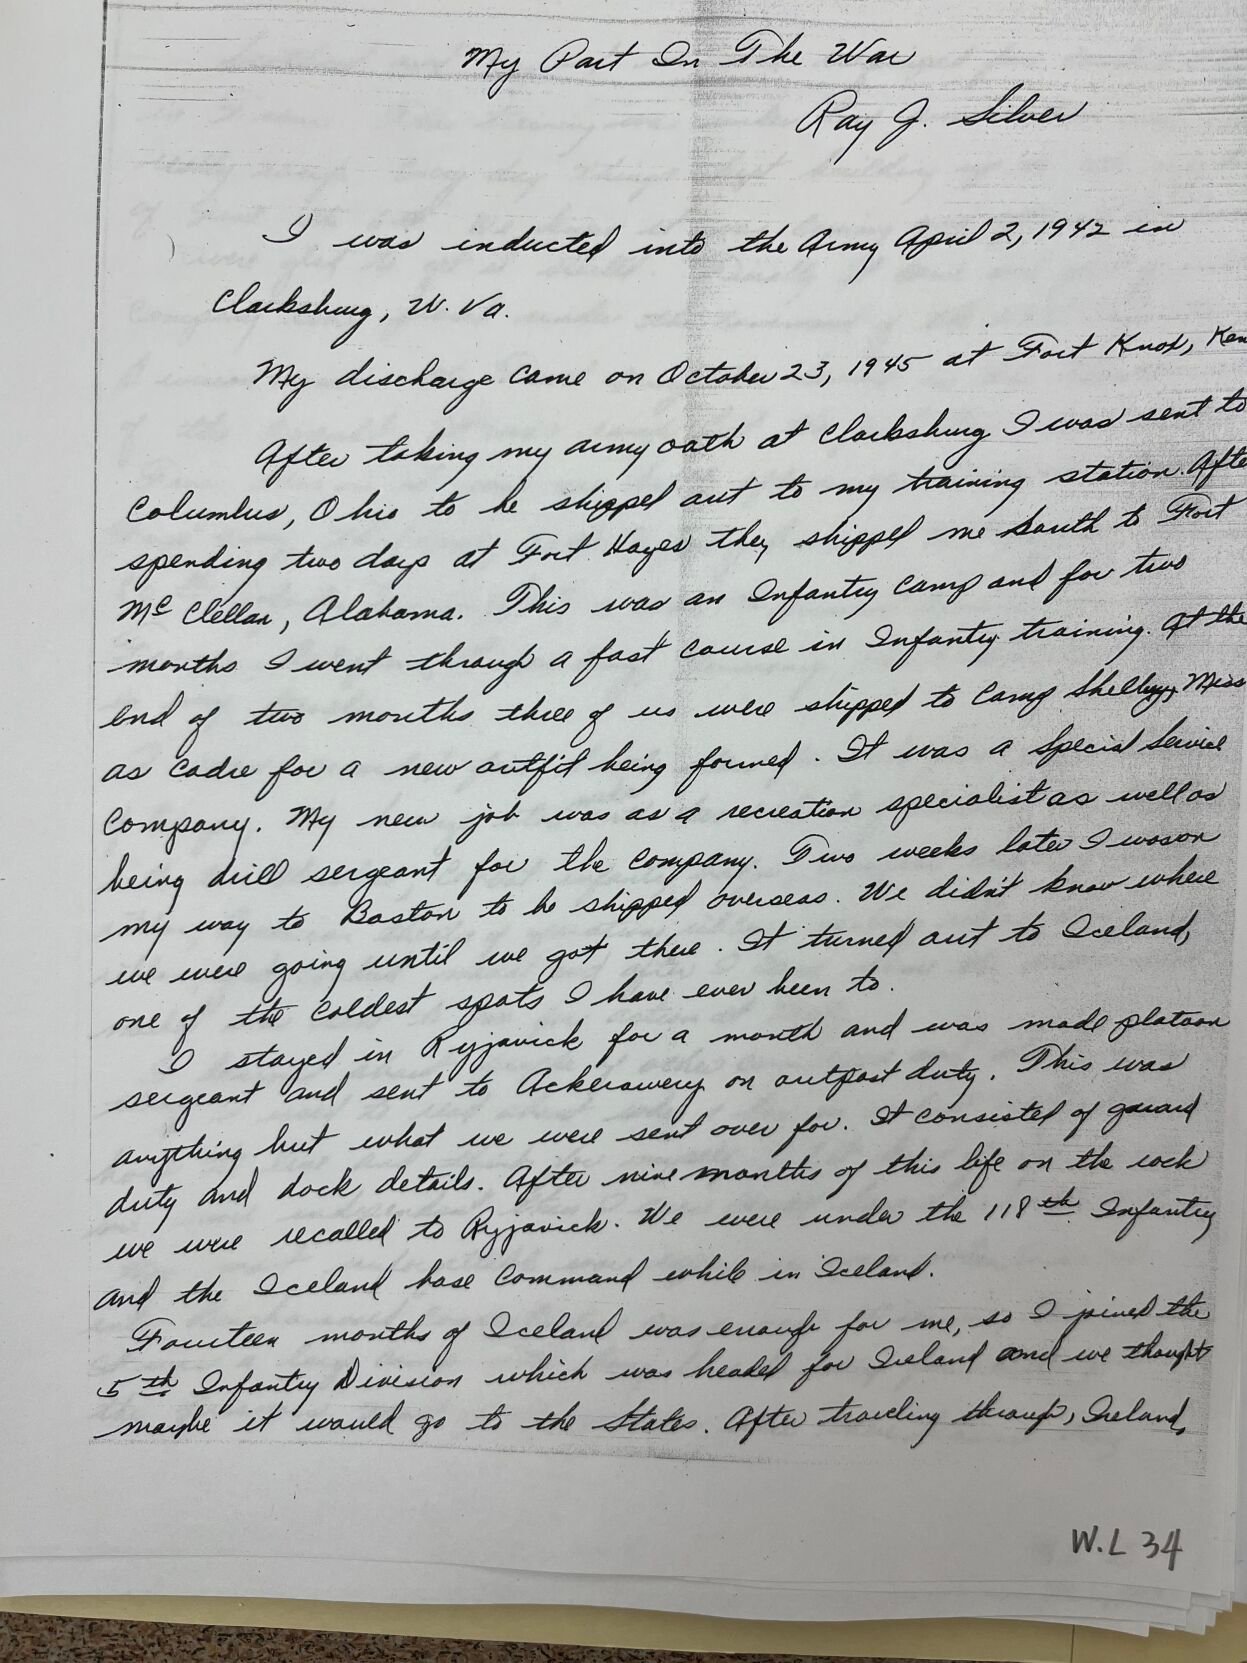 My Part In The War
Ray J. Silver
I was inducted into the Army April 2, 1942 in
Clarksburg, W. Va.
My discharge came on October 23, 1945 at Fort Knox, Ken
After taking my army oath at Clarksburg I was sent to
Columbus, Ohio to be shipped out to my training station. Afte
spending two days at Fort Hayes they shipped me South to Fort
Mc Clellan, Alabama. This was an Infantry Camp and for two
months I went through a fast course in Infantry training. At the
end of two months three of us were shipped to Camp Shelby, Miss
as Cadre for a new outfit being formed. It was a Special Service
Company. My new job was as a recreation specialist as well as
being drill sergeant for the Company. Two weeks later I was on
my way to Boston to be shipped overseas. We didn't know where
we were going until we got there. It turned out to Iceland,
one of the coldest spots I have ever been to.
I stayed in Ryjavick for a month and was made platoon
sergeant and sent to Ackerowery on outpost duty. This was
anything but what we were sent over for. It consisted of guard
duty and dock details. After nine months of this life on the rock
we were recalled to Ryjavick. We were under the 118th Infantry
and the Iceland base Command while in Iceland.
Fourteen months of Iceland was enough for me, so I joined the
5th Infantry Division which was headed for Ireland and we thought
maybe it would go to the States. After traveling through, Ireland,
W.L 34